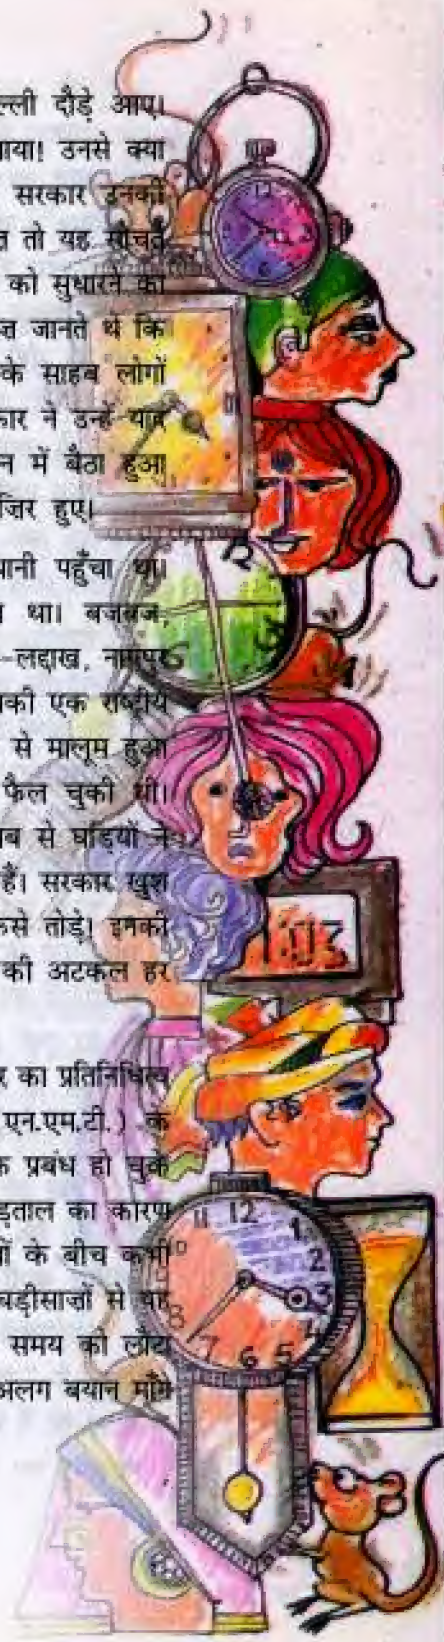 ल्ली दौड़े आए।
ाया! उनसे क्या
सरकार उनकी
त तो यह सोचते
को सुधारने का
ज़ जानते थे कि
के साहब लोगों
कार ने उन्हें याद
न में बैठा हुआ
ज़िर हुए।
धानी पहुँचा था।
था। बजबज,
-लद्दाख, नागपुर
की एक राष्ट्रीय
से मालूम हुआ
फैल चुकी थी।
ब से घड़ियों ने
हैं। सरकार खुश
कैसे तोड़े! इनकी
की अटकल हर
र का प्रतिनिधित्व
एन.एम.टी.) के
क प्रबंध हो चुके
ड़ताल का कारण
ों के बीच कभी
घड़ीसाज़ों से यह
समय को लौटा
अलग बयान माँगे
12
12
1:03
11 12 1
10 2
3
8 4
7 6 5